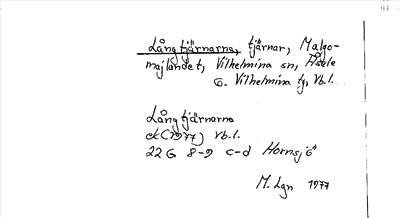 Långtjärnarna, tjärnar, Malgo-
majlandet, Vilhelmina sn, Åsele
o. Vilhelmina tg, Vb.l.
Långtjärnarna
ek(1977) Vb.l.
22G 8-9 c-d Hornsjö
M. Lgn 1977